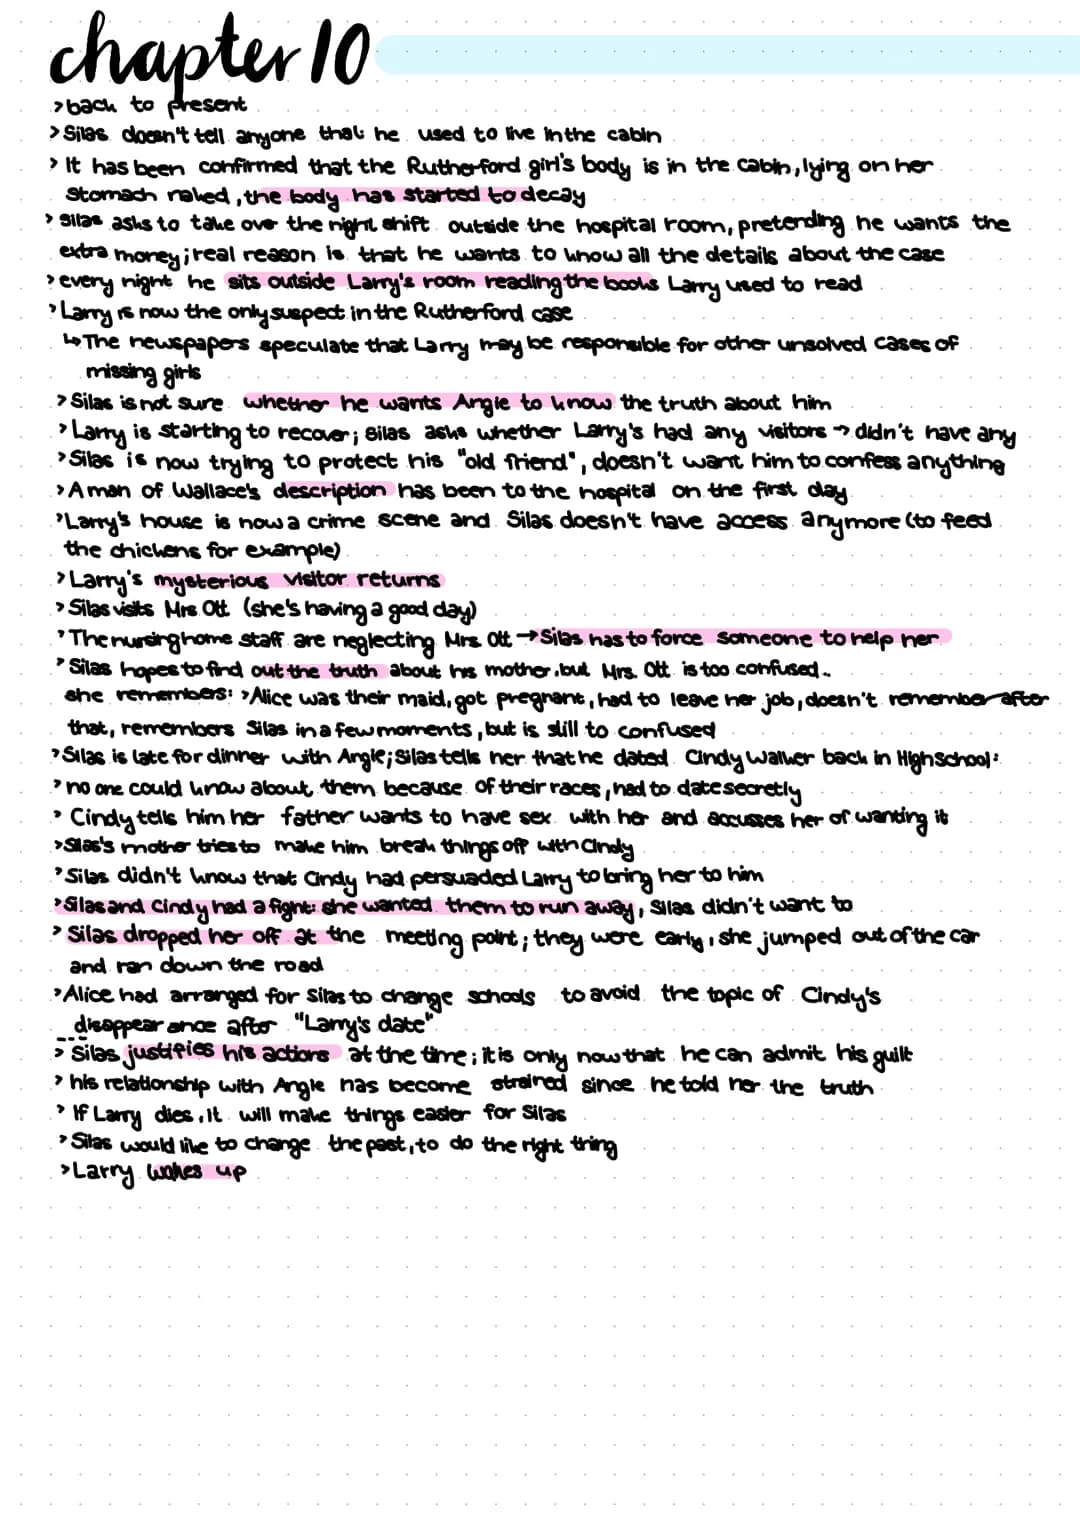 chapter 10
>back to present
>Silas doesn't tell anyone that he used to live in the cabin
> It has been confirmed that the Rutherford girl's body is in the cabin, lying on her
stomach naked, the body has started to decay
> Silas asks to take over the night shift outside the hospital room, pretending he wants the
extra money; real reason is that he wants to know all the details about the case
>every night he sits outside Larry's room reading the books Larry used to read
>Larry is now the only suspect in the Rutherford case
↳The newspapers speculate that Larry may be responsible for other unsolved cases of
missing girls
>Silas is not sure whether he wants Angie to know the truth about him
>Larry is starting to recover; Silas asks whether Larry's had any visitors → didn't have any
>Silas is now trying to protect his "old friend", doesn't want him to confess anything
>A man of Wallace's description has been to the hospital on the first day
>Larry's house is now a crime scene and Silas doesn't have access anymore (to feed
the chickens for example)
>Larry's mysterious visitor returns
>Silas visits Mrs Ott (she's having a good day)
>The nursing home staff are neglecting Mrs. Ott → Silas has to force someone to help her
>Silas hopes to find out the truth about his mother, but Mrs. Ott is too confused..
she remembers: >Alice was their maid, got pregnant, had to leave her job, doesn't remember after
that, remembers Silas in a few moments, but is still to confused
>Silas is late for dinner with Angie; Silas tells her that he dated Cindy Walker back in Highschool:
>no one could know about them because of their races, had to date secretly
> Cindy tells him her father wants to have sex with her and accusses her of wanting it
>Silas's mother tries to make him break things off with Cindy
>Silas didn't know that Cindy had persuaded Larry to bring her to him
>Silas and Cindy had a fight: she wanted them to run away, Silas didn't want to
> Silas dropped her off at the meeting point; they were early, she jumped out of the car
and ran down the road
>Alice had arranged for Silas to change schools to avoid the topic of Cindy's
disappearance after "Larry's date"
> Silas justifies his actions at the time; it is only now that he can admit his guilt
> his relationship with Angie has become strained since he told her the truth
> If Larry dies, it will make things easier for Silas
>Silas would like to change the past, to do the right thing
>Larry wakes up